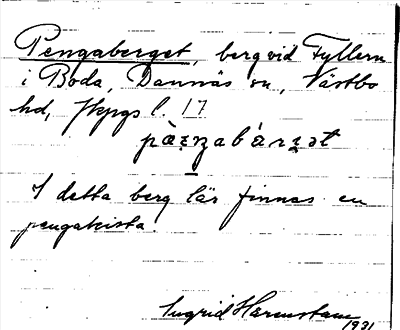 Pengaberget, berg vid Fyllern
i Boda, Dannäs sn, Västbo
hd, Jkpgs l. 17
pæ̀ŋabárɪət
I detta berg lär finnas en
pengakista.
Ingrid Harenstam
1931